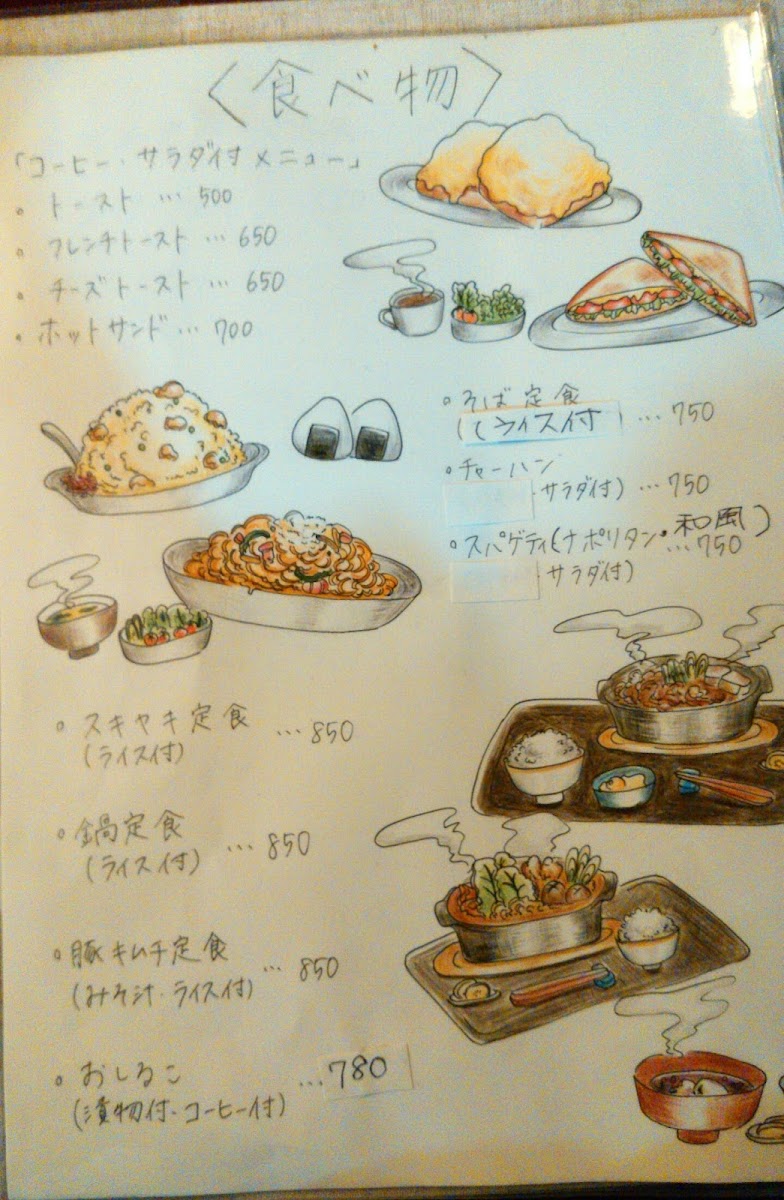 〈食べ物〉
「コーヒー・サラダ付メニュー」
。トースト … 500
。フレンチトースト … 650
。チーズトースト … 650
・ホットサンド … 700
。そば定食
(ライス付) … 750
。チャーハン
サラダ付) … 750
。スパゲティ(ナポリタン・和風)
… 750
サラダ付)
。スキヤキ定食 … 850
(ライス付)
。鍋定食 … 850
(ライス付)
。豚キムチ定食 … 850
(みそ汁・ライス付)
。おしるこ … 780
(漬物付・コーヒー付)